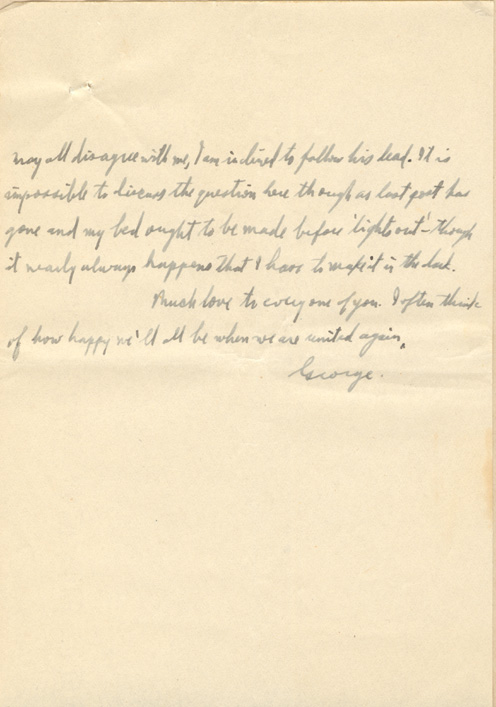 may all disagree with me, I am inclined to follow his lead. It is
impossible to discuss the question here though as last post has
gone and my bed ought to be made before 'lights out' - though
it nearly always happens that I have to make it in the dark.
Much love to everyone of you. I often think
of how happy we'll all be when we are united again.
George.